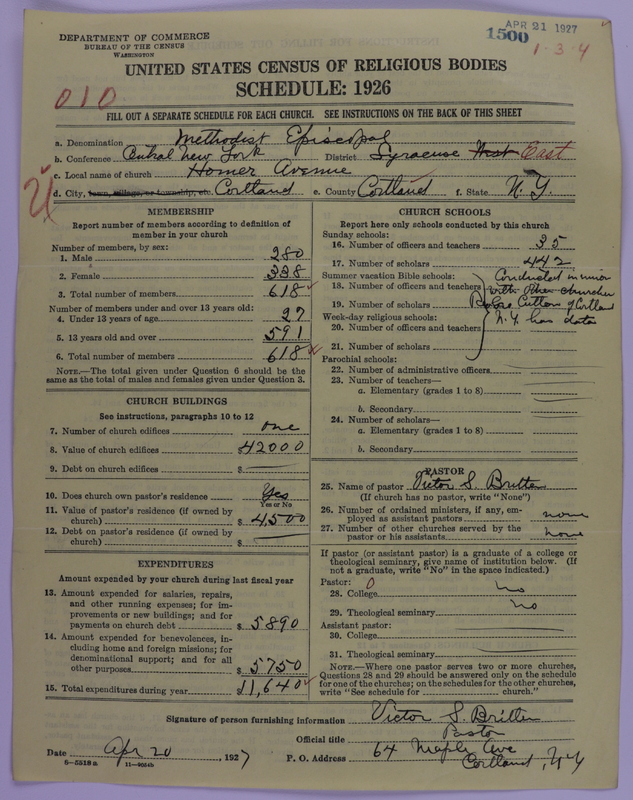 APR 21 1927
1500
1-3-4
DEPARTMENT OF COMMERCE
BUREAU OF THE CENSUS
WASHINGTON
UNITED STATES CENSUS OF RELIGIOUS BODIES
SCHEDULE: 1926
010
FILL OUT A SEPARATE SCHEDULE FOR EACH CHURCH. SEE INSTRUCTIONS ON THE BACK OF THIS SHEET
a. Denomination Methodist Episcopal
b. Conference Central New York District Syracuse West East
c. Local name of church Homer Avenue
d. City, town, village, or township, etc. Cortland e. County Cortland f. State N. Y.
MEMBERSHIP
Report number of members according to definition of
member in your church
Number of members, by sex:
1. Male 280
2. Female 338
3. Total number of members 618
Number of members under and over 13 years old:
4. Under 13 years of age 27
5. 13 years old and over 591
6. Total number of members 618
NOTE.—The total given under Question 6 should be
the same as the total of males and females given under Question 3.
CHURCH BUILDINGS
See instructions, paragraphs 10 to 12
7. Number of church edifices one
8. Value of church edifices $42000
9. Debt on church edifices $
10. Does church own pastor's residence Yes
Yes or No
11. Value of pastor's residence (if owned by
church) $4500
12. Debt on pastor's residence (if owned by
church) $
EXPENDITURES
Amount expended by your church during last fiscal year
13. Amount expended for salaries, repairs,
and other running expenses; for im-
provements or new buildings; and for
payments on church debt $5890
14. Amount expended for benevolences, in-
cluding home and foreign missions; for
denominational support; and for all
other purposes $5750
15. Total expenditures during year $11,640
CHURCH SCHOOLS
Report here only schools conducted by this church
Sunday schools:
16. Number of officers and teachers 35
17. Number of scholars 442
Summer vacation Bible schools: Conducted in union
18. Number of officers and teachers with other churches
19. Number of scholars of Cortland
Week-day religious schools: N. Y. has data
20. Number of officers and teachers
21. Number of scholars
Parochial schools:
22. Number of administrative officers
23. Number of teachers—
a. Elementary (grades 1 to 8)
b. Secondary
24. Number of scholars—
a. Elementary (grades 1 to 8)
b. Secondary
PASTOR
25. Name of pastor Victor S. Britten
(If church has no pastor, write "None")
26. Number of ordained ministers, if any, em-
ployed as assistant pastors none
27. Number of other churches served by the
pastor or his assistants none
If pastor (or assistant pastor) is a graduate of a college or
theological seminary, give name of institution below. (If
not a graduate, write "No" in the space indicated.)
Pastor: 0
28. College no
29. Theological seminary no
Assistant pastor:
30. College
31. Theological seminary
NOTE.—Where one pastor serves two or more churches,
Questions 28 and 29 should be answered only on the schedule
for one of the churches; on the schedules for the other churches,
write "See schedule for church."
Signature of person furnishing information Victor S. Britten
Official title Pastor
Date Apr 20, 1927 P. O. Address 64 Maple Ave
Cortland, N.Y.
6-5518a 11-9054b